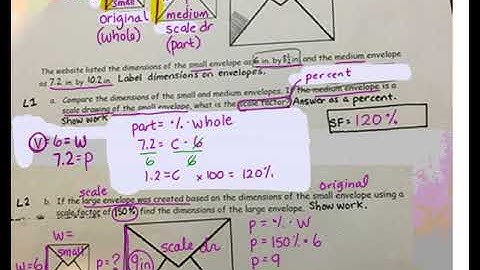 small
original
(whole)
medium
scale dr
(part)
The website listed the dimensions of the small envelope as 6 in. by 8½ in and the medium envelope
as 7.2 in. by 10.2 in. Label dimensions on envelopes.
percent
L1
a. Compare the dimensions of the small and medium envelopes. If the medium envelope is a
scale drawing of the small envelope, what is the scale factor? Answer as a percent.
Show work
SF= 120%
part = % · whole
V = 6 = W
7.2 = P
7.2 = C · 6
6 6
1.2 = C x 100 = 120%
scale
original
L2
b. If the large envelope was created based on the dimensions of the small envelope using a
scale factor of 150%, find the dimensions of the large envelope. Show work.
W=
small
W=6
P=?
9in
scale dr
P = % · W
P = 150% · 6
P = 9